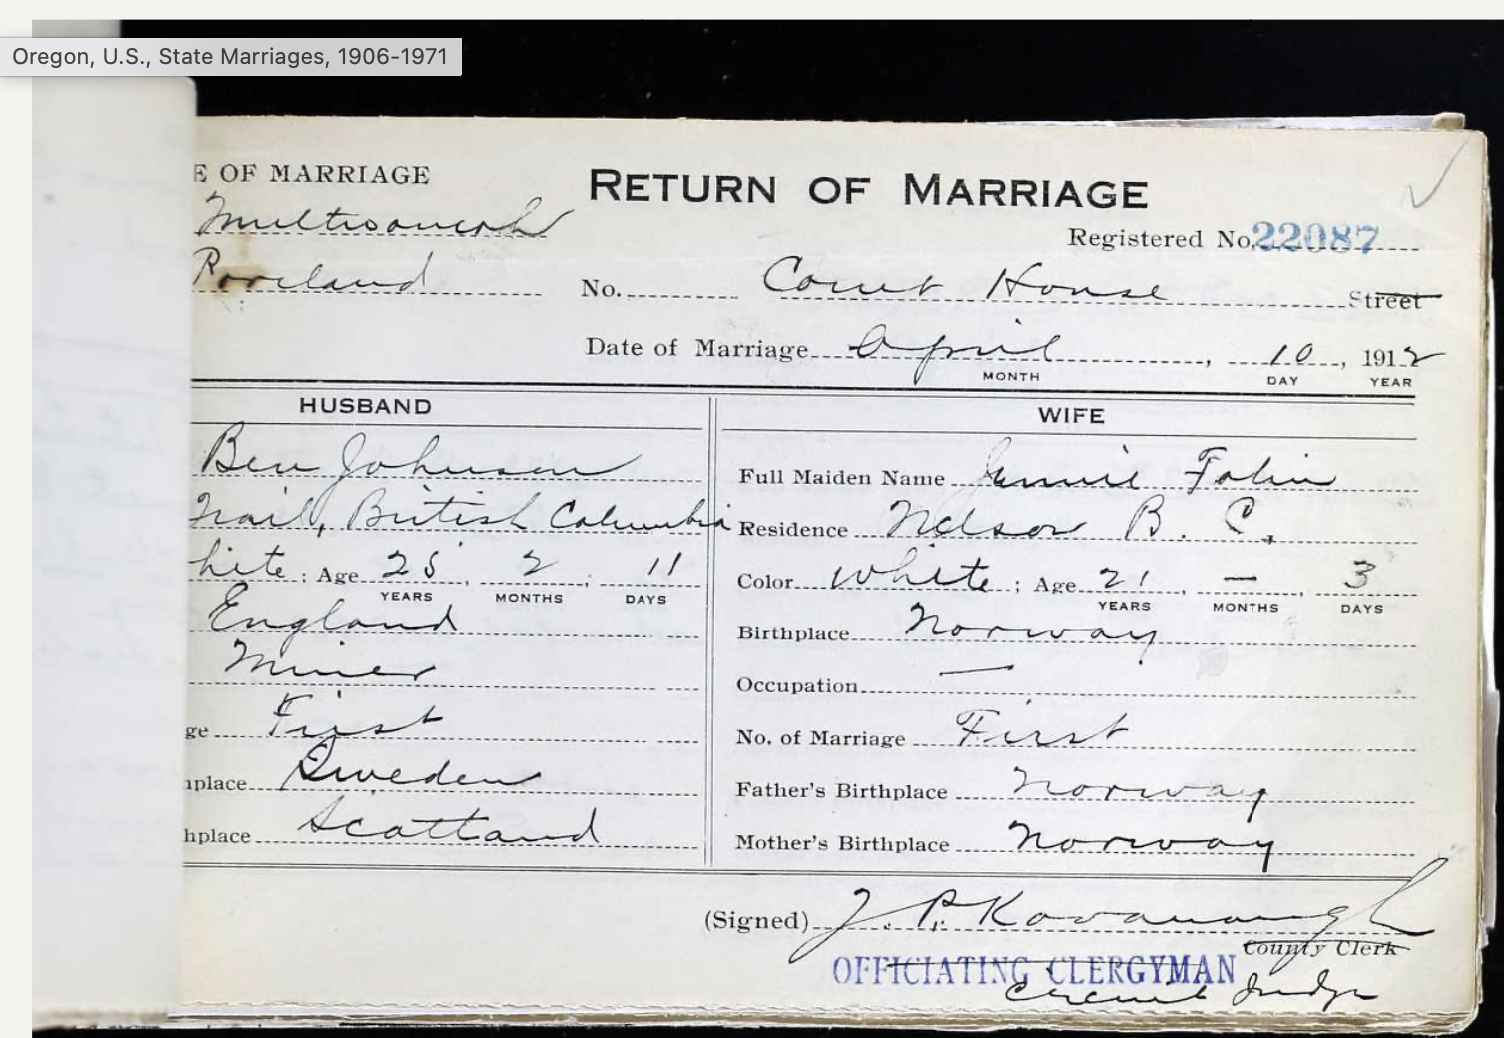 Oregon, U.S., State Marriages, 1906-1971
E OF MARRIAGE
RETURN OF MARRIAGE
Multnomah
Registered No. 22087
Portland
No. Court House Street
Date of Marriage April, 10, 1912
MONTH DAY YEAR
HUSBAND
WIFE
Ben Johnson
Full Maiden Name Jennie Folin
Trail, British Columbia
Residence Nelson B. C.
hite; Age 25, 2, 11
YEARS MONTHS DAYS
Color White; Age 21, —, 3
YEARS MONTHS DAYS
England
Birthplace Norway
Miner
Occupation —
ge First
No. of Marriage First
nplace Sweden
Father's Birthplace Norway
hplace Scottand
Mother's Birthplace Norway
(Signed) J. P. Kavanaugh
County Clerk
OFFICIATING CLERGYMAN
Circuit Judge